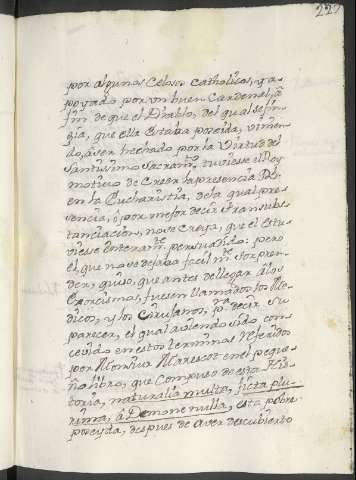 227
por algunos Celosos Catholicos, y a-
poyado por un buen Cardenal, â
fin de que el Diablo, del qual se fin-
gia, que ella Estaba poseida, vinien-
do, a ser hechado por la Virtud del
Santissimo Sacramto, tuviese el Rey
motivo de Creer la presencia Rl
en la Eucharistia, de la qual pre-
sencia, ô por mejor decir transubs-
tanciacion, no se Creya, que el Estu-
viese Enteramte persuadido: pero
el que no se dejaba facilmte sorpren-
der, quiso, que antes de llegar â los
Exorcismos, fuesen llamados los Me-
dicos, y los Cirujanos, pa decir su
parecer, el qual aviendo sido con-
cevido en estos terminos referidos
por Monsiur Marescot en el peque-
ño libro, que Compuso de esta His-
toria, naturalia multa, ficta plu-
rima, â Demone nulla, esta pobre
poseyda, despues de aver descubierto